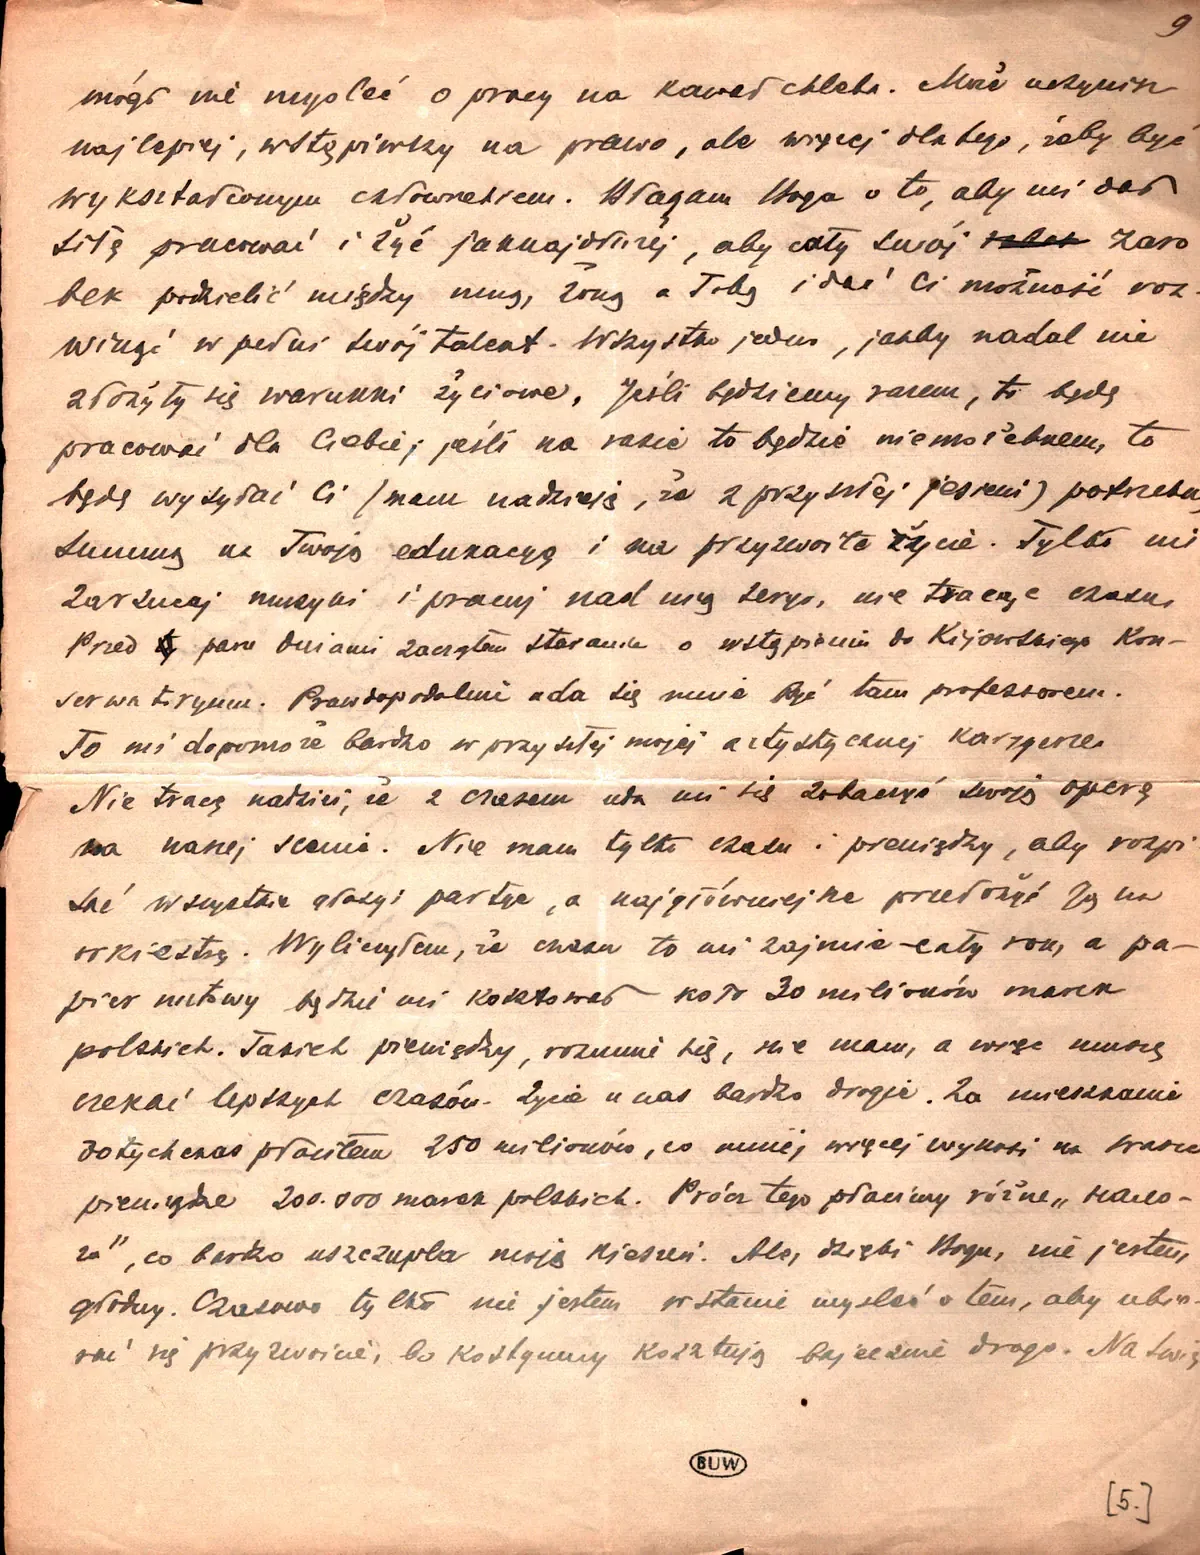 9
mógł nie myśleć o pracy na kawał chleba. Może uczynisz
najlepiej, wstąpiwszy na prawo, ale więcej dlatego, żeby być
wykształconym człowiekiem. Błagam Boga o to, aby mi dał
siłę pracować i żyć jaknajdłużej, aby cały swój zaro
bek podzielić między mną, żoną a Tobą i dać Ci możność roz-
winąć w pełni swój talent. Wszystko jedno, jakby nadal nie
złożyły się warunki życiowe. Jeśli będziemy razem, to będę
pracować dla Ciebie; jeśli na razie to będzie niemożebnem, to
będę wysyłać Ci (mam nadzieję, że z przyszłej jesieni) potrzebną
summę na Twoją edukacyą i na przyzwoite życie. Tylko nie
zarzucaj muzyki i pracuj nad nią seryo, nie tracąc czasu.
Przed paru dniami zacząłem starania o wstąpieniu do Kijowskiego Kon-
serwatoryum. Prawdopodobnie uda się mnie być tam professorem.
To mi dopomoże bardzo w przyszłej mojej artystycznej karyerze.
Nie tracę nadziei, że z czasem uda mi się zobaczyć swoją operę
na naszej scenie. Nie mam tylko czasu i pieniędzy, aby rozpi
sać wszystkie głosy i partye, a najgłówniejsze przełożyć Ją na
orkiestrę. Wyliczyłem, że czasu to mi zajmie cały rok, a pa-
pier nutowy będzie mi kosztował koło 30 milionów marek
polskich. Takich pieniędzy, rozumie się, nie mam, a więc muszę
czekać lepszych czasów. Życie u nas bardzo drogie. Za mieszkanie
dotychczas płaciłem 250 milionów, co mniej więcej wynosi na wasze
pieniądze 200.000 marek polskich. Prócz tego płacimy różne „нало-
га", co bardzo uszczupla moją kieszeń. Ale, dzięki Bogu, nie jestem
głodny. Czasowo tylko nie jestem w stanie myśleć o tem, aby ubie-
rać się przyzwoicie, bo kostyumy kosztują bajecznie drogo. Na swię
BUW
[5.]